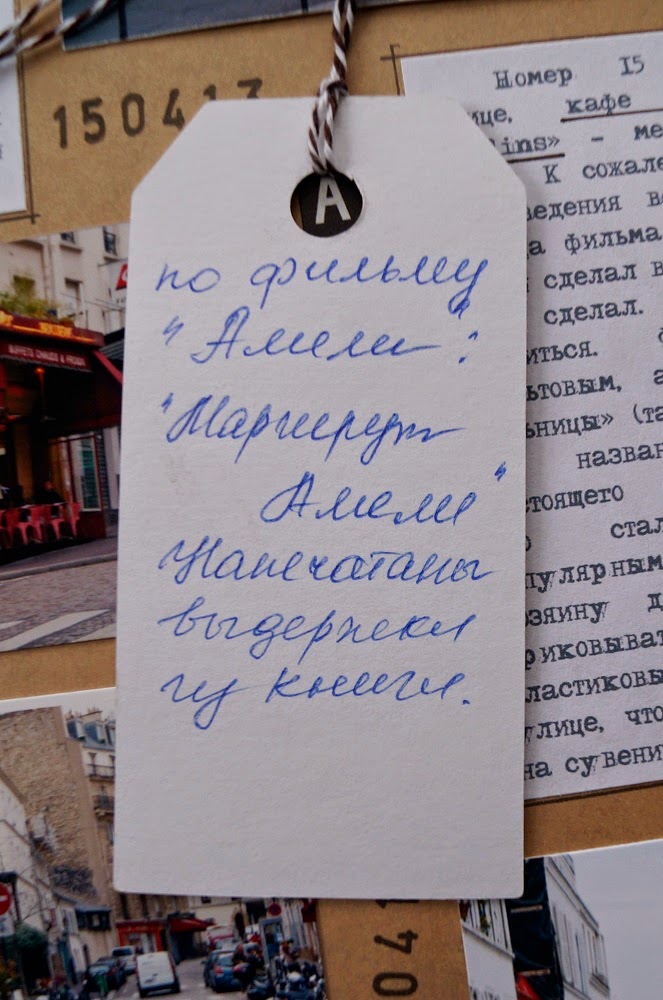 150413
Номер 15
ице, кафе
ins» – ме
К сожале
ведения в
а фильма
сделал в
сделал.
иться.
ьтовым, а
ьницы» (та
назван
стоящего
стал
пулярным
озяину д
риковыват
ластиковы
улице, что
на сувени
A
по фильму
"Амели":
"Маршрут
Амели"
Напечатаны
выдержки
из книги.
BUFFETS CHAUDS & FROIDS
04